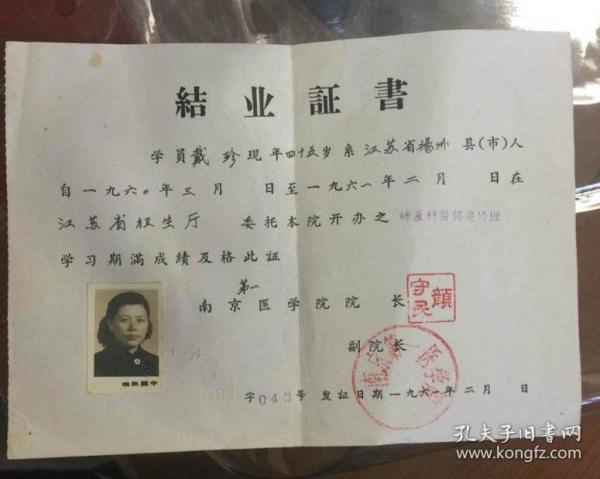 結业証書
学員戴珍现年四十五岁系江苏省揚州县(市)人
自一九六〇年三月 日至一九六一年二月 日在
江苏省卫生厅 委托本院开办之婦產科醫師進修班
学习期满成績及格此証
第一
南京医学院院 长
顏守民
副院长
字043号 发证日期一九六一年二月 日
孔夫子旧書网
www.kongfz.com